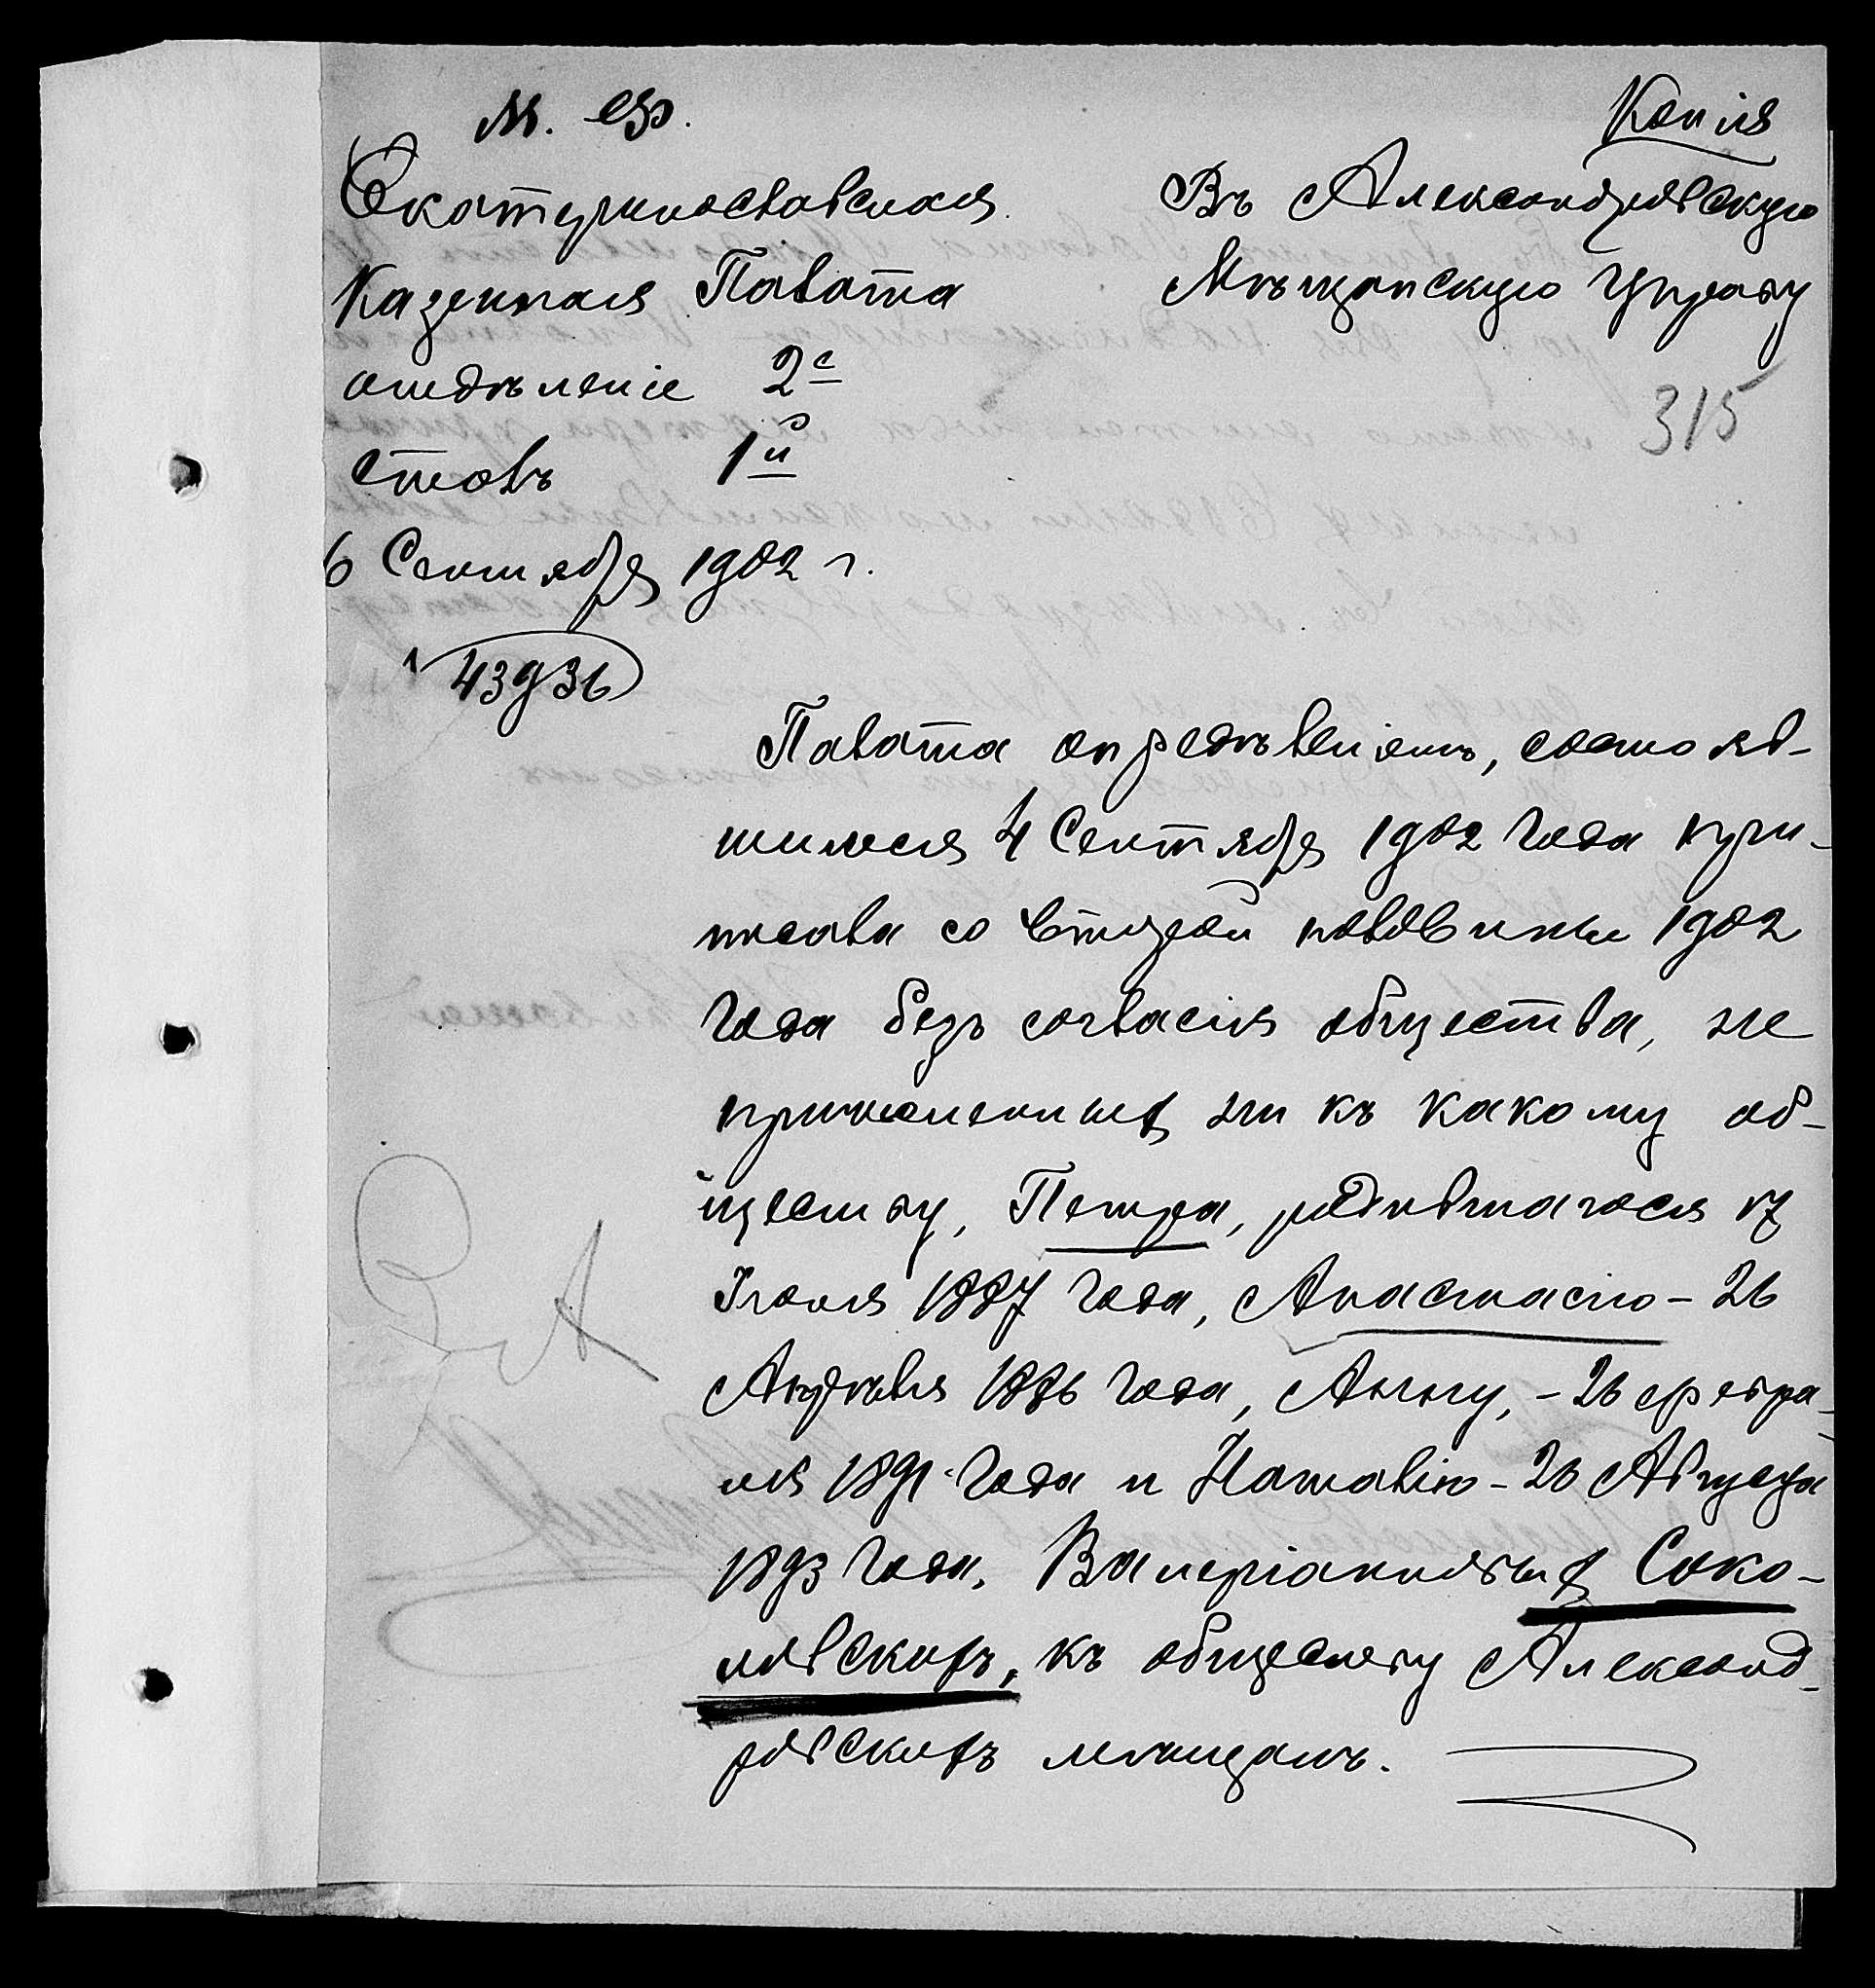 М. Ф.
Копія
Екатеринославская
Казенная Палата
отдѣленіе 2е
столъ 1й
6 Сентября 1902 г.
43936
Въ Александровскую
Мѣщанскую Управу
315
Палата опредѣленіемъ, состояв-
шимся 4 Сентября 1902 года при-
писала со второй половины 1902
года безъ согласія общества, не
причисленныхъ ни къ какому об-
ществу, Петра, родившагося 17
Іюня 1887 года, Анастасію - 26
Апрѣля 1886 года, Анну, - 26 Февра-
ля 1891 года и Наталію - 26 Августа
1893 года, Валеріановыхъ Соко-
ловскихъ, къ обществу Александ-
ровскихъ мѣщанъ.